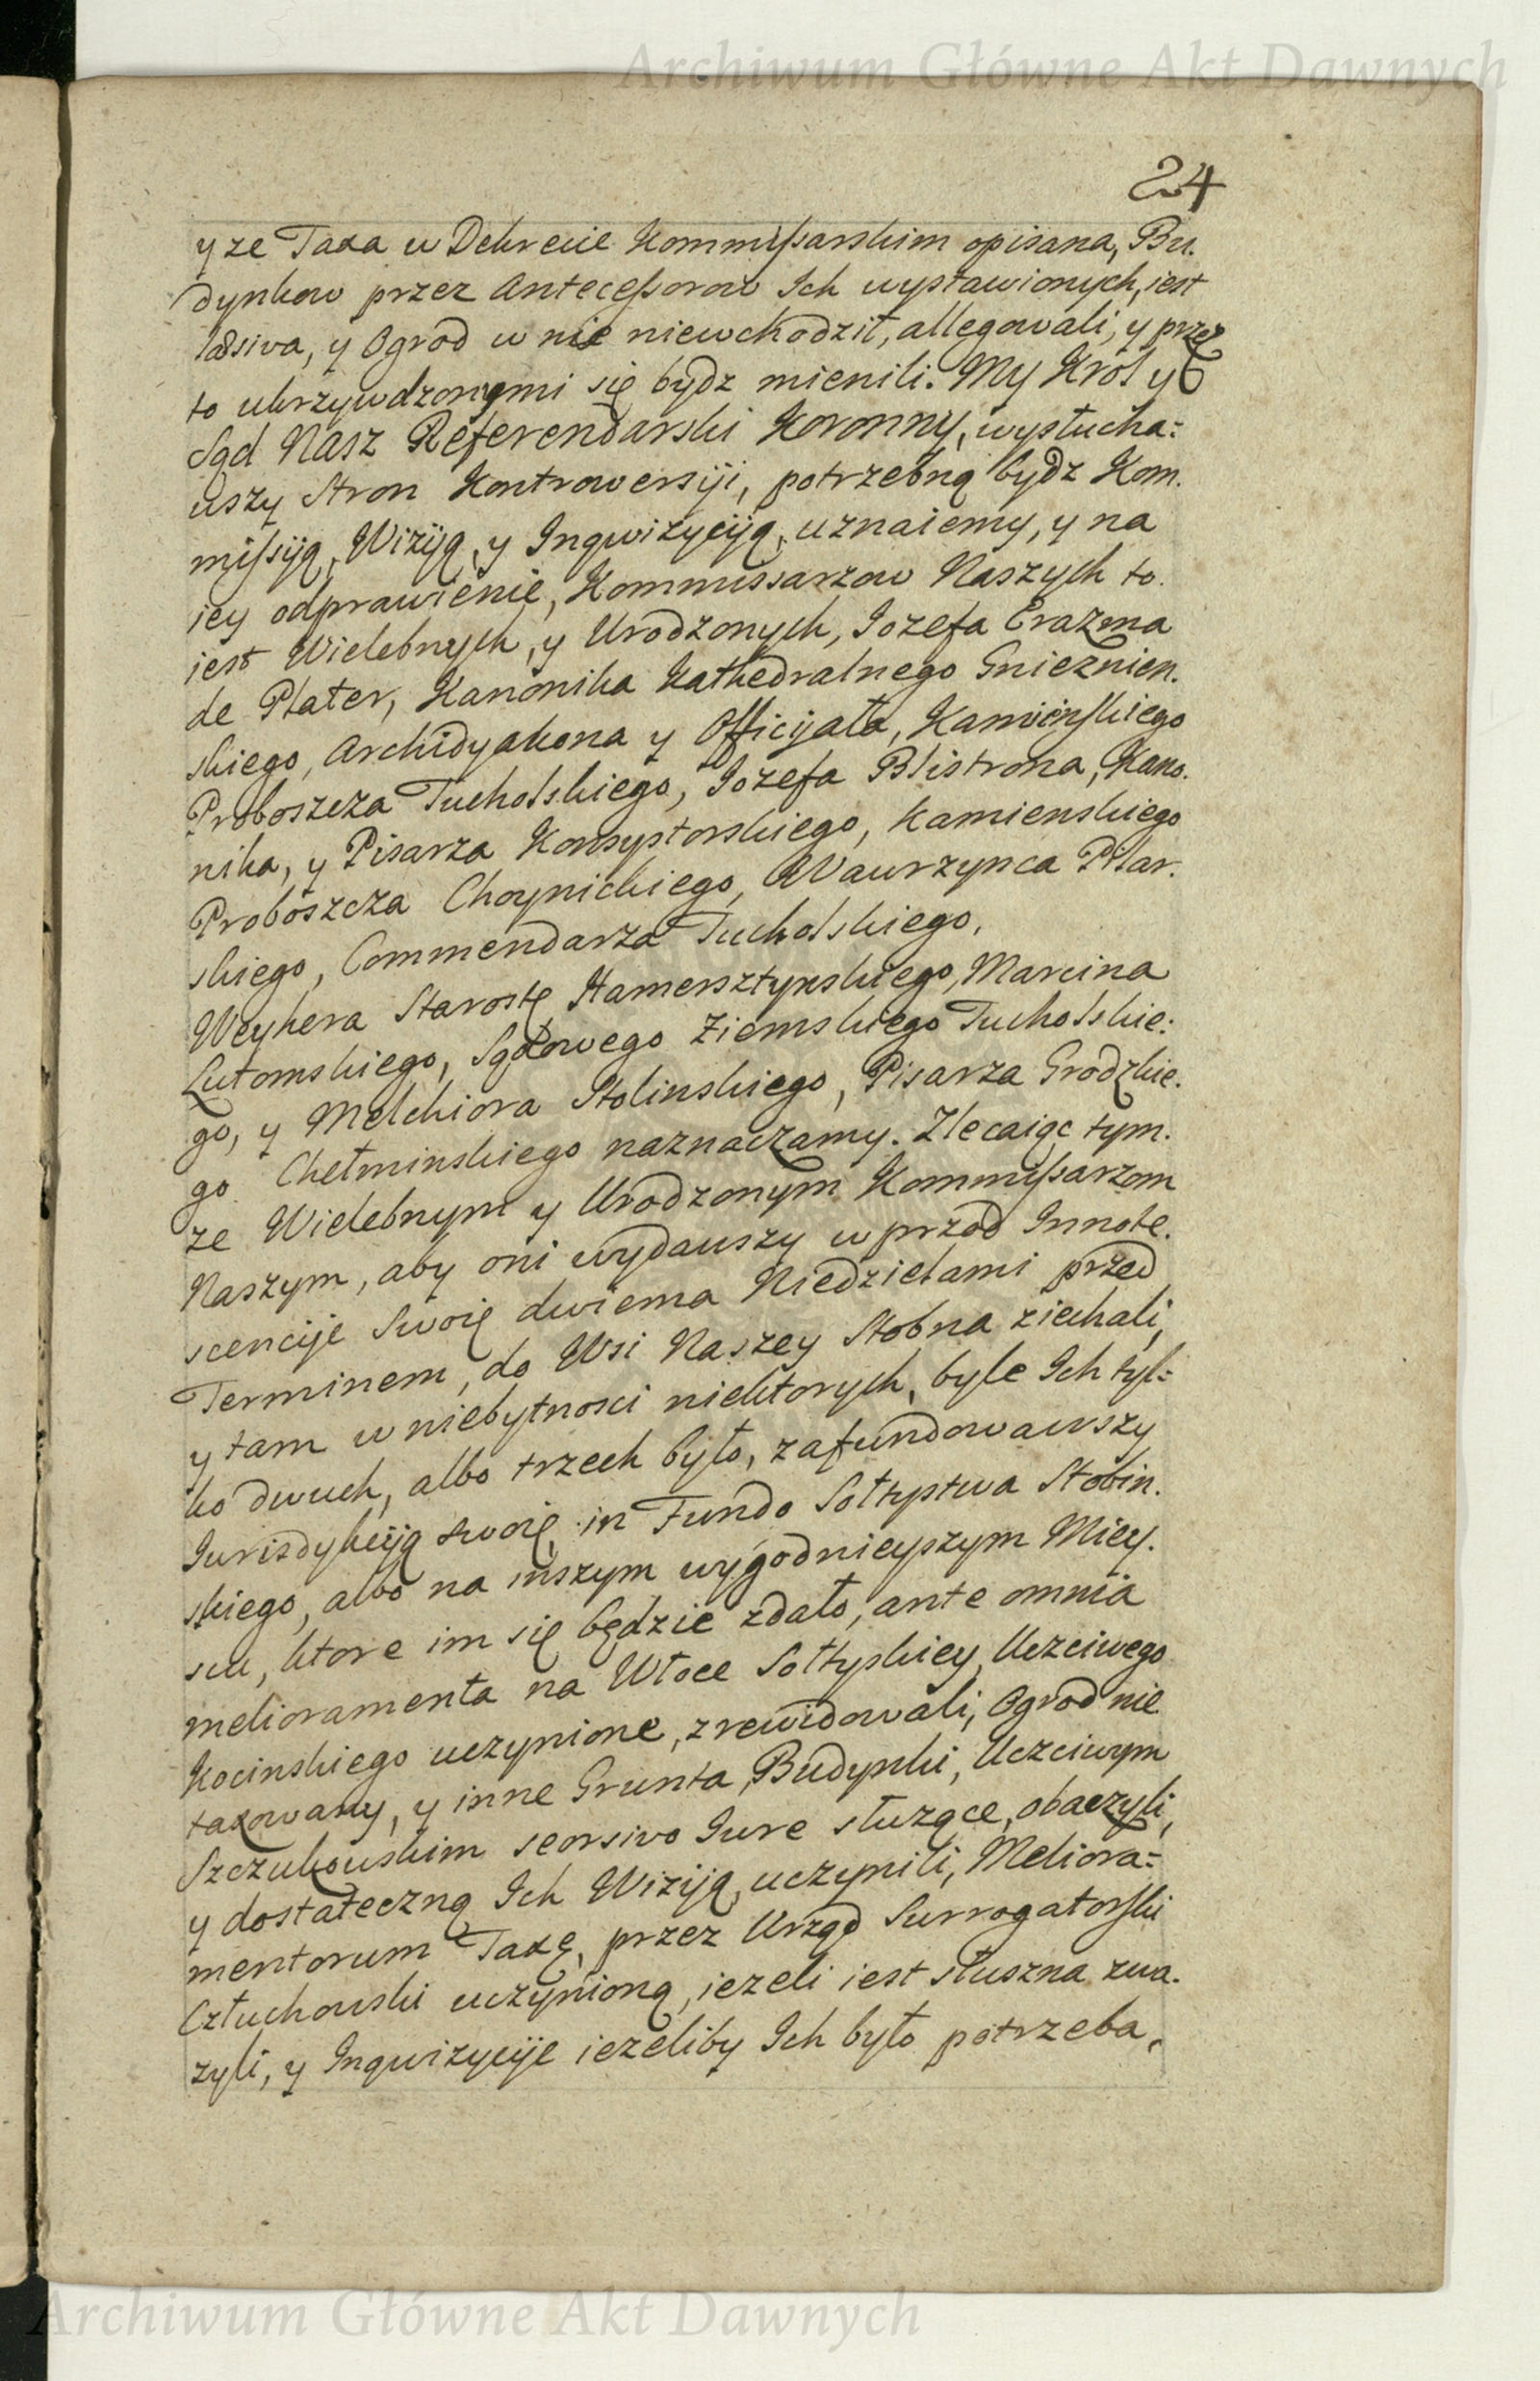 Archiwum Główne Akt Dawnych
24
y ze Taxa w Dekrecie Kommissarskim opisana, Bu.
dynkow przez Antecessorow Ich wystawionych, iest
laesiva, y Ogrod w nię niewchodził, allegowali, y przez
to ukrzywdzonymi się bydz mienili. My Krol y
Sąd Nasz Referendarski Koronny, wysłucha:
wszy Stron Kontrowersyi, potrzebną bydz Kom.
missyią, Wizyią, y Inqwizycyią, uznaiemy, y na
iey odprawienie, Kommissarzow Naszych to.
iest Wielebnych, y Urodzonych, Iozefa Erazma
de Plater, Kanonika Kathedralnego Gnieznien.
skiego, Archidyakona y Officyała, Kamienskiego
Proboszcza Tucholskiego, Iozefa Blistrona, Kano.
nika, y Pisarza Konsystorskiego, Kamienskiego
Proboszcza Choynickiego, Wawrzynca Pilar.
skiego, Commendarza Tucholskiego,
Weyhera Starostę Hamersztynskiego, Marcina
Lutomskiego, Sądowego Ziemskiego Tucholskie:
go, y Melchiora Stolinskiego, Pisarza Grodzkie.
go Chełminskiego naznaczamy. Zlecaiąc tym.
ze Wielebnym y Urodzonym Kommissarzom
Naszym, aby oni wydawszy w przod Innote.
scencyie Swoię dwiema Niedzielami przed
Terminem, do Wsi Naszey Stobna ziechali,
y tam w niebytnosci niektorych, byle Ich tyl:
ko dwuch, albo trzech było, zafundowawszy
Iurisdykcyią swoię, in Fundo Sołtystwa Stobin.
skiego, albo na inszym wygodnieyszym Miey.
scu, ktore im się będzie zdało, ante omnia
melioramenta na Włoce Sołtyskiey, Uczciwego
Kocinskiego uczynione, zrewidowali, Ogrod nie
taxowany, y inne Grunta, Budynki, Uczciwym
Szczukowskim seorsivo Iure służące, obaczyli,
y dostateczną Ich Wizyią, uczynili, Meliora:
mentorum Taxę, przez Urząd Surrogatorski
Człuchowski uczynioną, iezeli iest słuszna zwa.
zyli, y Inqwizycyie iezeliby Ich było potrzeba,
Archiwum Główne Akt Dawnych